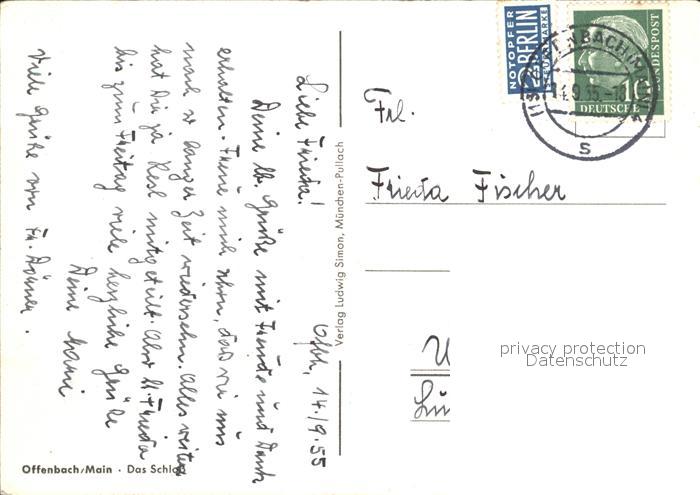 Offb, 14./9.55
Liebe Frieda!
Deine lb. Grüße mit Freude und Dank
erhalten. Freue mich sehr, daß wir uns
nach so langer Zeit wiedersehn. Alles weitere
hat Dir ja Resl mitgeteilt. Also ll. Frieda
bis zum Freitag viele herzliche Grüße
Deine
Viele Grüße von Fr.
Offenbach/Main · Das Schloß
Verlag Ludwig Simon, München-Pullach
NOTOPFER
2 BERLIN
STEUERMARKE
DEUTSCHE
BUNDESPOST
10
14.9.55
S
Frl.
Frieda Fischer
privacy protection
Datenschutz